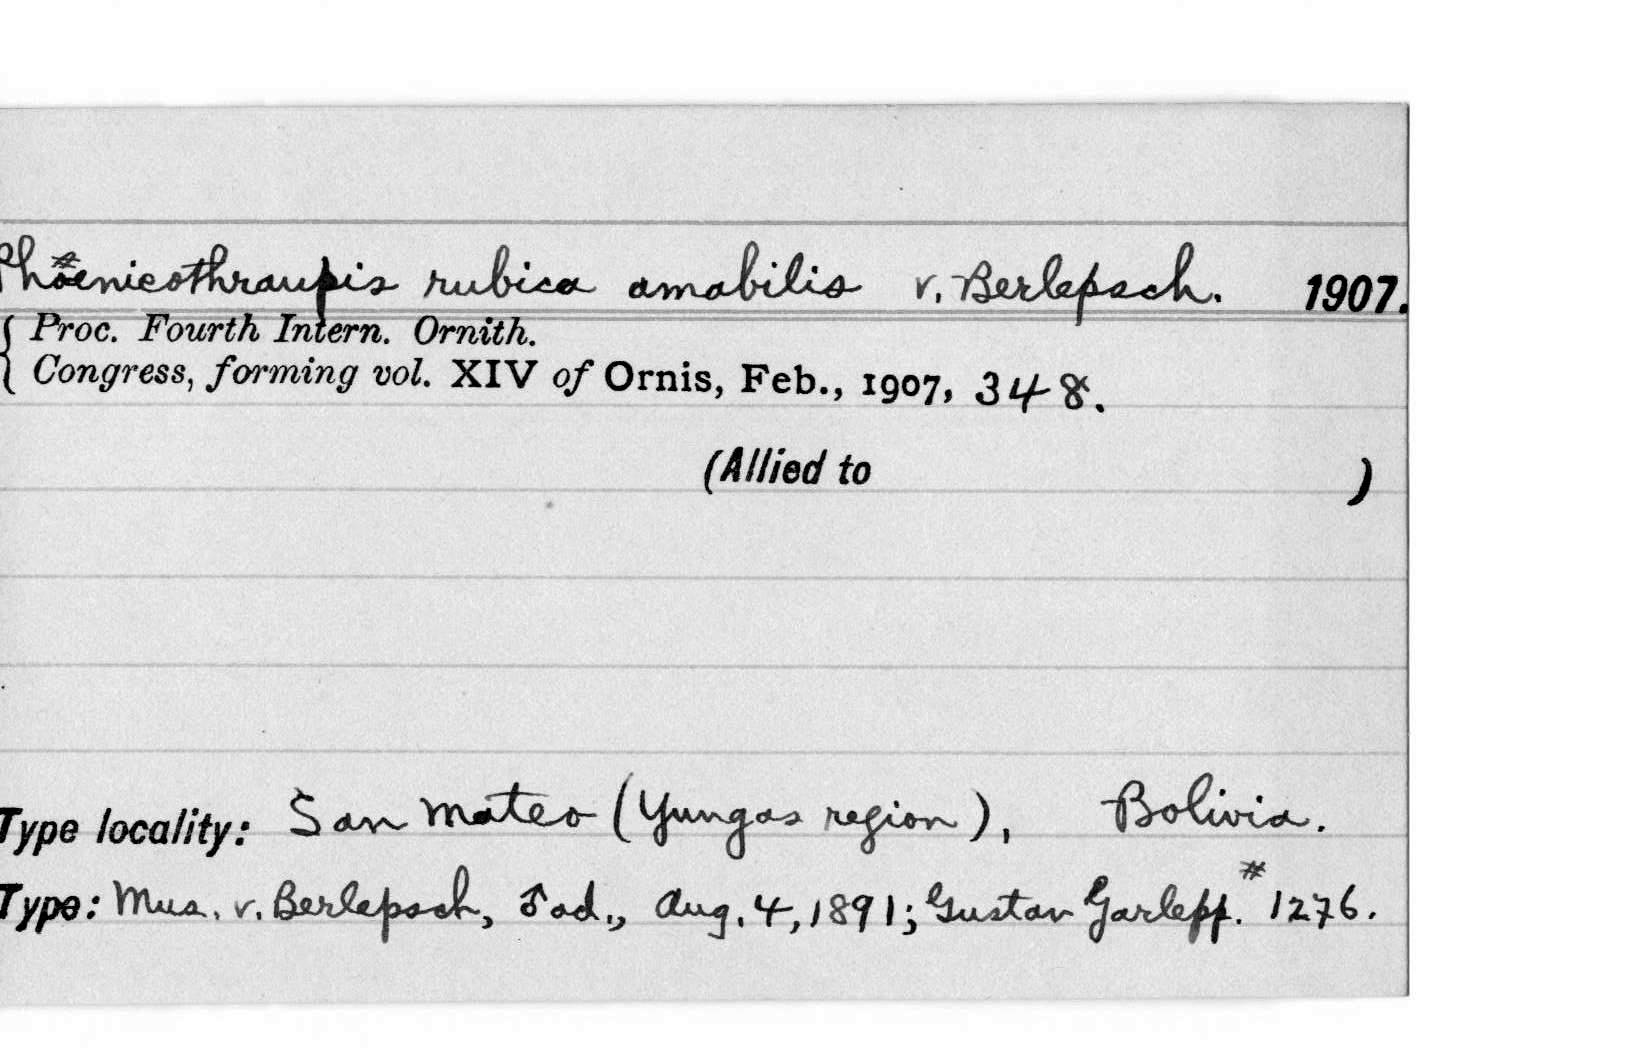 Phoenicothraupis rubica amabilis v. Berlepsch. 1907.
{ Proc. Fourth Intern. Ornith.
Congress, forming vol. XIV of Ornis, Feb., 1907, 348.
(Allied to )
Type locality: San Mateo (Yungas region), Bolivia.
Type: Mus. v. Berlepsch, ♂ ad., Aug. 4, 1891; Gustav Garlepp. # 1276.